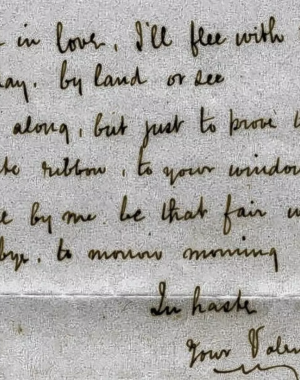 in love, I'll flee with
by land or see
along, but just to prove
ribbon, to your window
by me be that fair
bye, to morrow morning
In haste
Your Valen